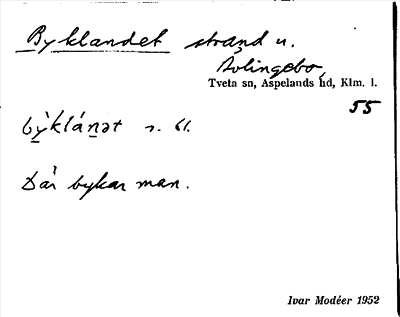 Byklandet strand u.
Avlingebo,
Tveta sn, Aspelands hd, Klm. l.
55
bỳklánət n. bf.
Där bykar man.
Ivar Modéer 1952